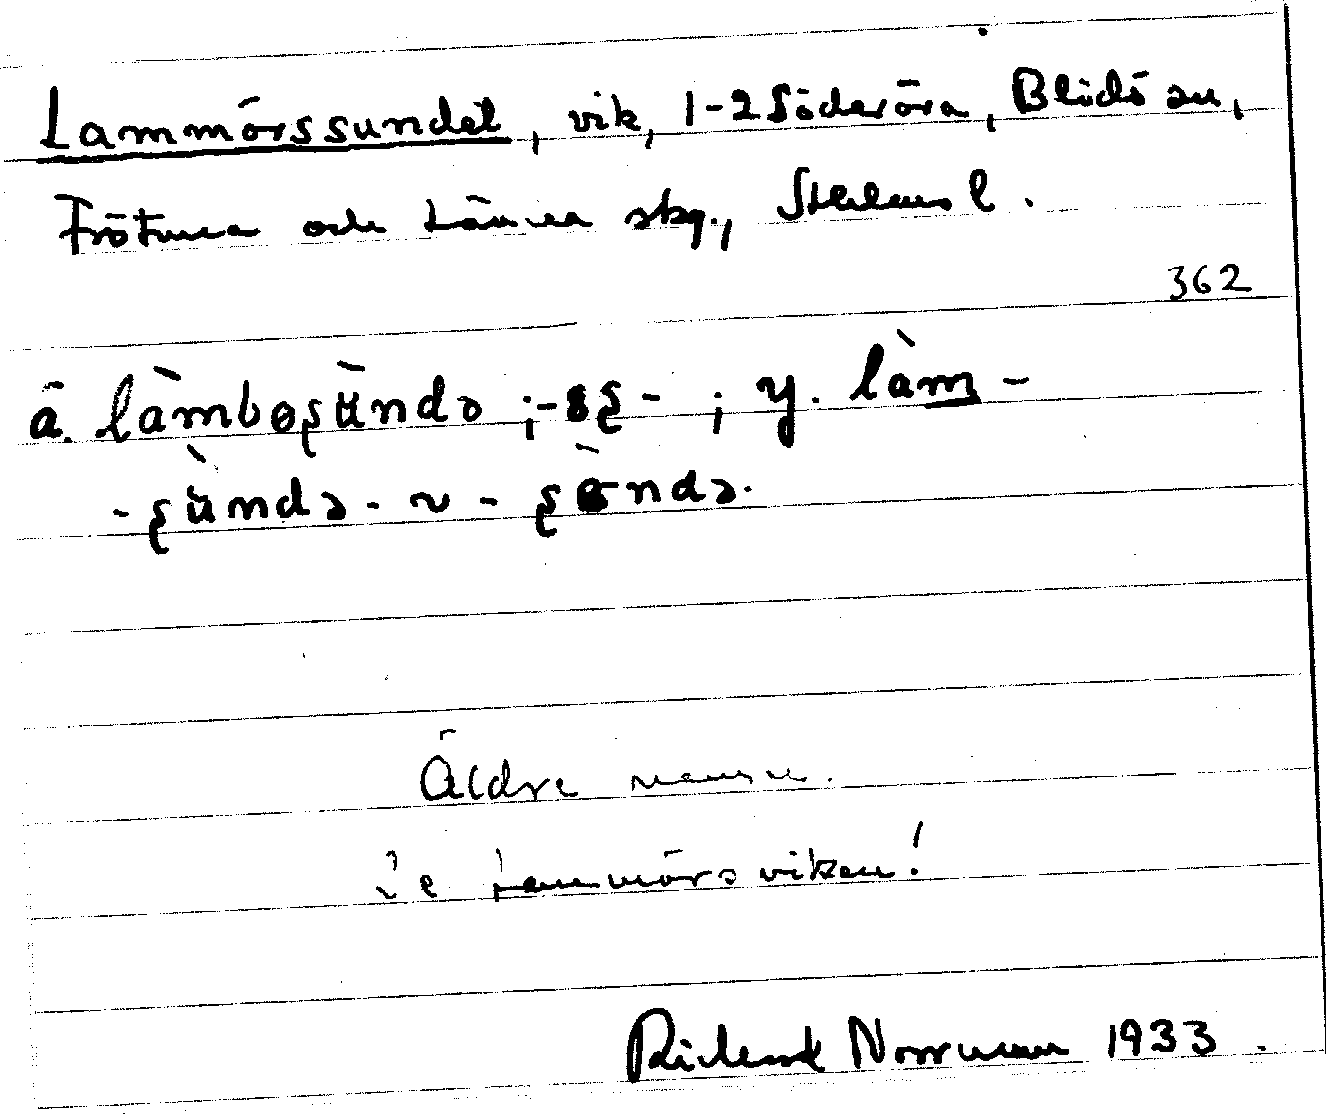 Lammörssundet, vik, 1-2 Söderöra, Blidö sn,
Frötuna och Länna skg., Sthlms l.
362
ä. làmbosùndə ; -sʂ- ; y. làm-
-ʂùndə- ~ -ʂɵ̀ndə.
Äldre namn.
Se Lammörsviken!
Rickard Norrman 1933.